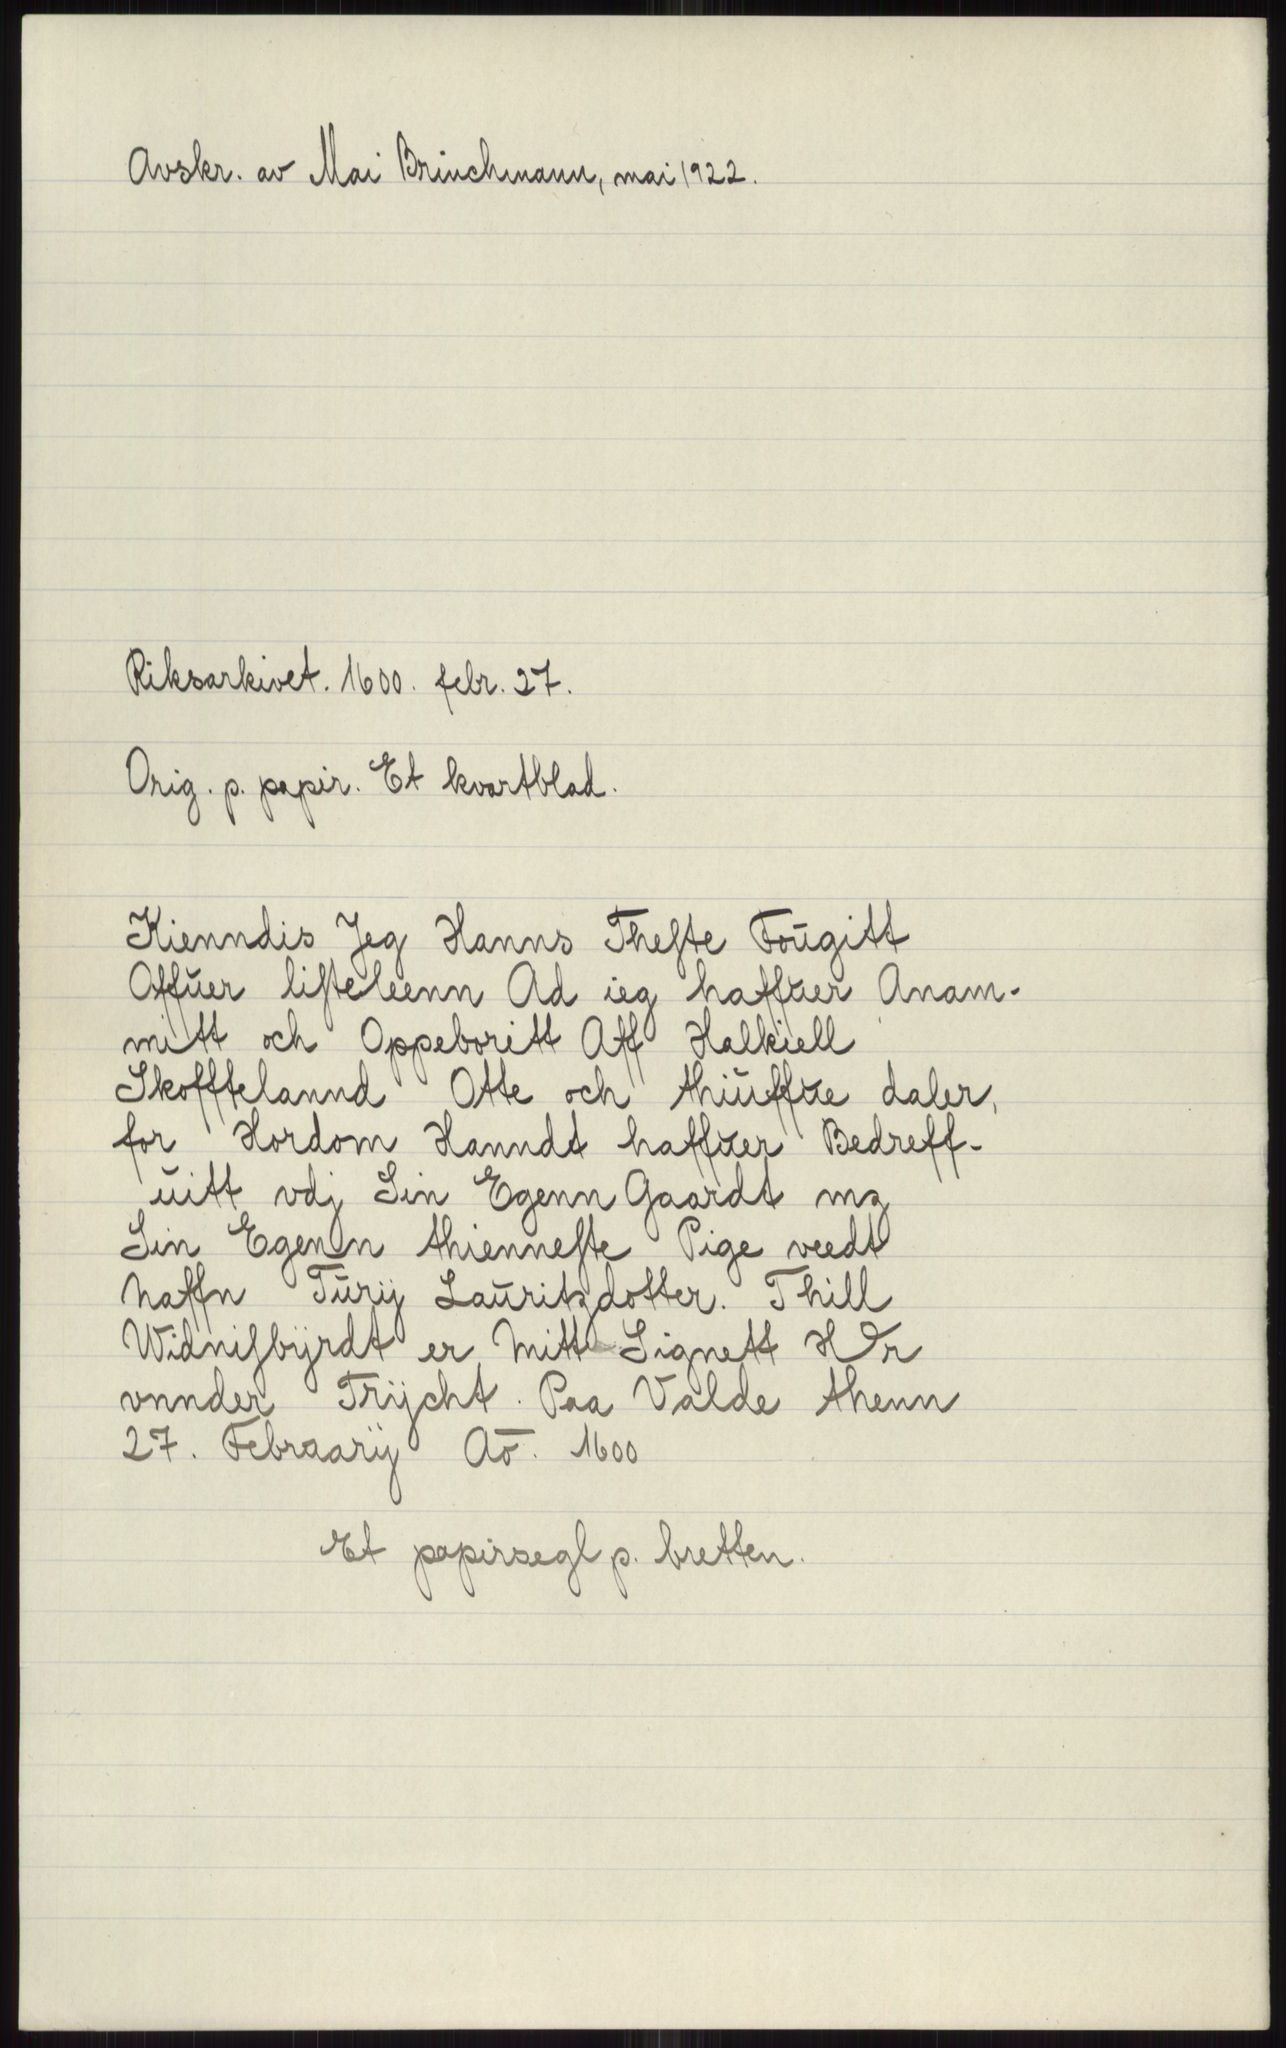 Avskr. av Mai Brinchmann, mai 1922.
Riksarkivet. 1600. febr. 27.
Orig. p. papir. Et kvartblad.
Kienndis Jeg Hanns Theſte Foŭgitt
Offŭer liſteleenn Ad ieg haffŭer Anam-
mitt och Oppeboritt Aff Halkiell
Skofftelannd Otte och thiŭffŭe daler,
for Hordom Hanndt haffŭer Bedreff-
ŭitt vdj Sin Egenn Gaardt mz
Sin Egenn thienneſte Pige veedt
Naffn Tŭrij Laŭritzdotter. Thill
Widniſbÿrdt er Mitt Signett Her
vnnder Trÿcht. Paa Valde thenn
27. Februarij Aō. 1600
Et papirsegl p. bretten.